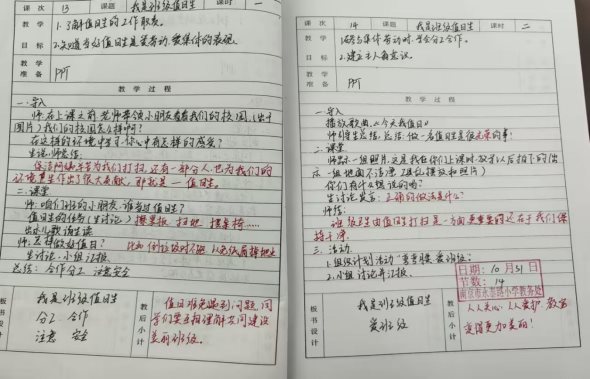 课次 13 课题 我是班级值日生 课时 一
教学目标
1.了解值日生的工作职责。
2.知道当好值日生是爱劳动、爱集体的表现。
教学准备 PPT
教学过程
一.导入
师:在上课之前,老师带领小朋友看看我们的校园(出示
图片)我们的校园怎么样啊?
在这样的环境中学习,你心中有怎样的感受?
生说,师总结:
保洁阿姨辛苦为我们打扫,还有一部分人,也为我们的
环境卫生作出了很大贡献,那就是—值日生。
二.课堂
师:咱们班的小朋友,谁当过值日生?
值日生的任务(生讨论)擦黑板 扫地 摆桌椅……
出示儿歌 请生读
师:怎样做好值日?
生讨论.小组汇报.
总结:合作分工 注意安全
板书设计
我是班级值日生
分工 合作
注意 安全
教后小计
值日难免遇到问题,同
学们要互相理解,共同建设
美丽班级。
课次 14 课题 我是班级值日生 课时 二
教学目标
1.在参与集体劳动时,学会分工合作。
2.建立主人翁意识。
教学准备 PPT
教学过程
一.导入
播放歌曲《今天我值日》
师引导生总结,总结:做一名值日生是很光荣的事!
二.课堂
师:出示一组照片,这是我在你们上课时、放学以后拍下的(出
示一组地面不洁净、桌椅摆放乱照片)
你们有什么想说的吗?
生讨论发言:正确的做法是什么?
师结:
班级卫生由值日生打扫是一方面,更重要的还在于我们保
持干净.
三.活动
2.小组讨论并汇报.
日期:10月31日
节数:14
板书设计
我是班级值日生
爱班级
教后小计
人人关心、人人爱护,教室
变得更加美丽!